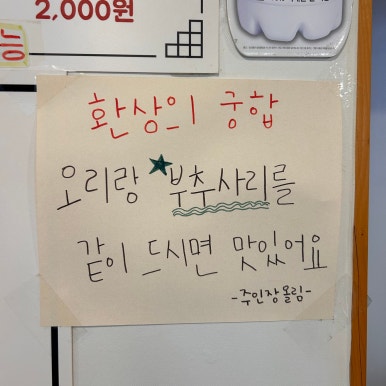 2,000원
환상의 궁합
오리랑 ★부추사리를
같이 드시면 맛있어요
-주인장올림-